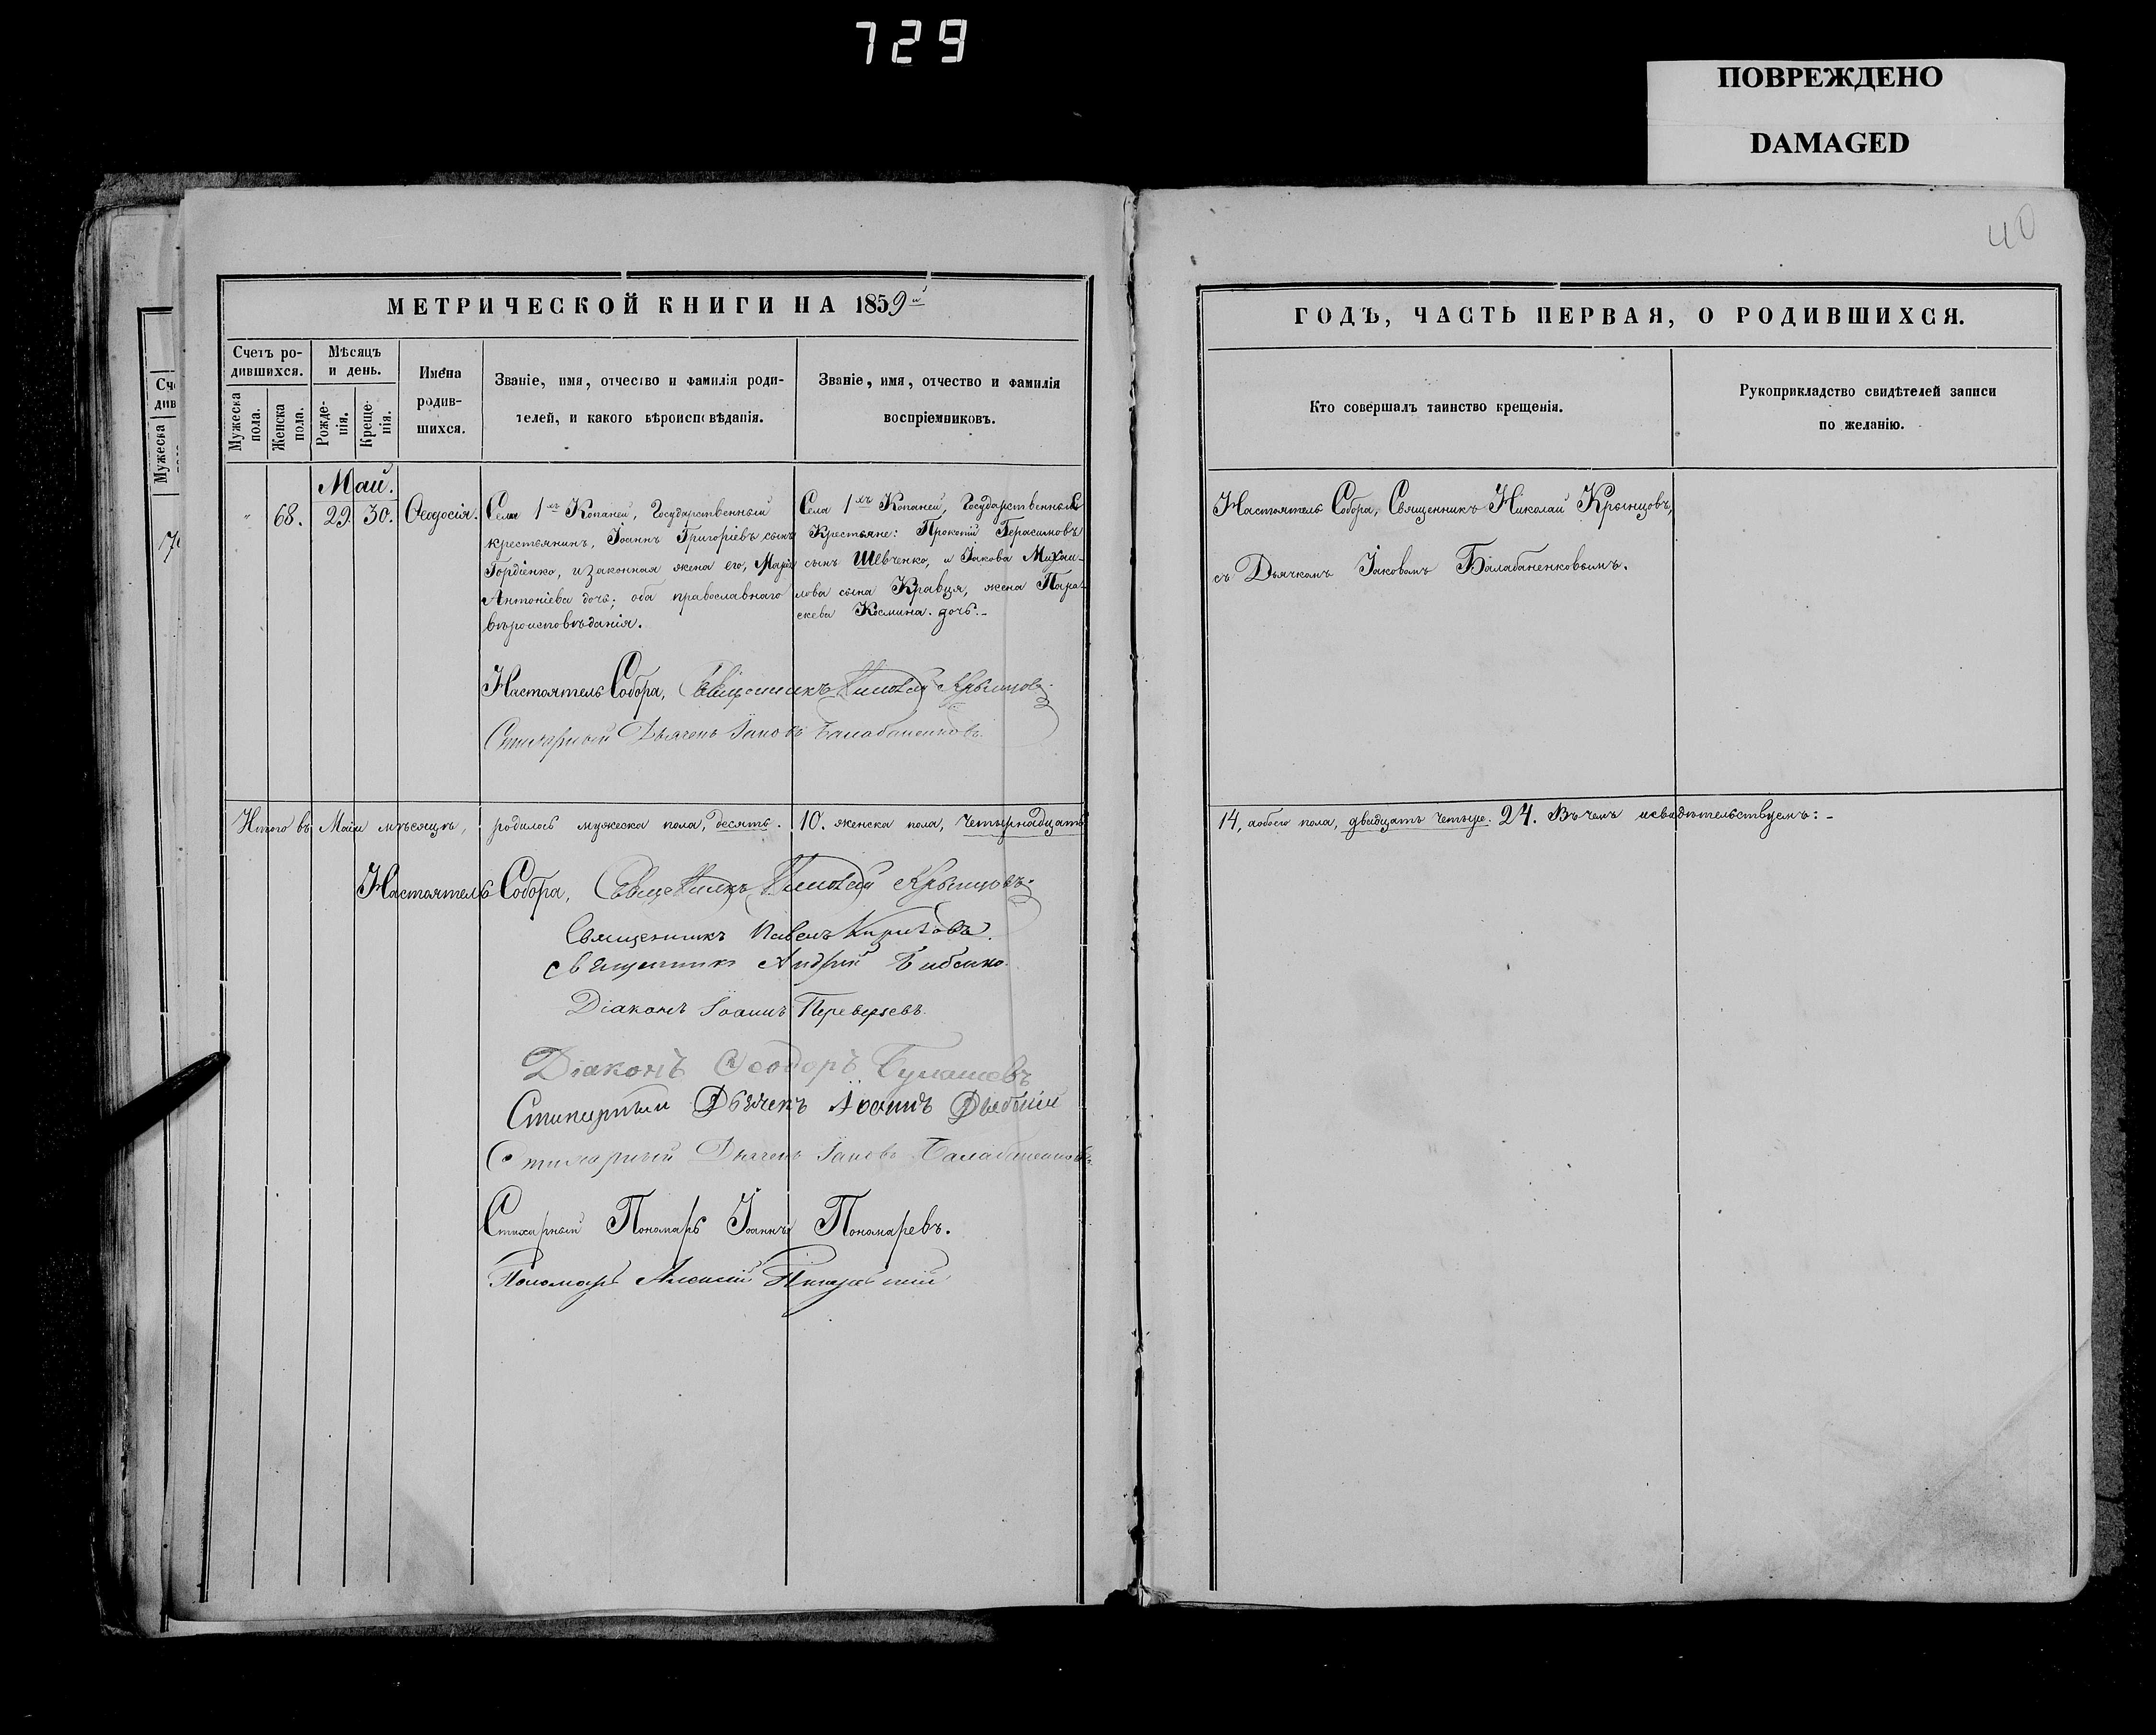 729
ПОВРЕЖДЕНО
DAMAGED
40
МЕТРИЧЕСКОЙ КНИГИ НА 1859й
Счетъ ро-
дившихся.
Мужеска пола.
Женска пола.
Мѣсяцъ
и день.
Рожде-
нія.
Креще-
нія.
Имена
родив-
шихся.
Званіе, имя, отчество и фамилія роди-
телей, и какого вѣроисповѣданія.
Званіе, имя, отчество и фамилія
воспріемниковъ.
Май.
" 68. 29. 30. Ѳеодосія.
Села 1хъ Копаней, Государственный
крестьянинъ, Іоаннъ Григоріевъ сынъ
Гордіенко, и законная жена его, Марія
Антоніева дочь; оба православнаго
вѣроисповѣданія.
Села 1хъ Копаней, Государственные
Крестьяне: Прокопій Герасимовъ
сынъ Шевченко, и Іакова Михаи-
лова сына Кравця, жена Пара-
скева Космина дочь.
Настоятель Собора, Священникъ Николай Крынцовъ
Стихарный Дьячекъ Іаковъ Балабаненковъ
Итого въ Маіи мѣсяцѣ, родилось мужеска пола, десять. 10. женска пола, четырнадцать
Настоятель Собора, Священникъ Николай Крынцовъ
Священникъ Павелъ
Священникъ Андрей
Діаконъ Іоаннъ Переверзевъ.
Діаконъ Ѳеодоръ
Стихарный Дьячекъ Іоаннъ
Стихарный Дьячекъ Іаковъ Балабаненковъ
Стихарный Пономарь Іоаннъ Пономаревъ.
Пономарь Алексій
ГОДЪ, ЧАСТЬ ПЕРВАЯ, О РОДИВШИХСЯ.
Кто совершалъ таинство крещенія.
Рукоприкладство свидѣтелей записи
по желанію.
Настоятель Собора, Священникъ Николай Крынцовъ,
съ Дьячкомъ Іаковомъ Балабаненковымъ.
14, аобоего пола, двадцать четыре. 24. Въ чемъ исвидѣтельствуемъ: -
Сче
див
Мужеска